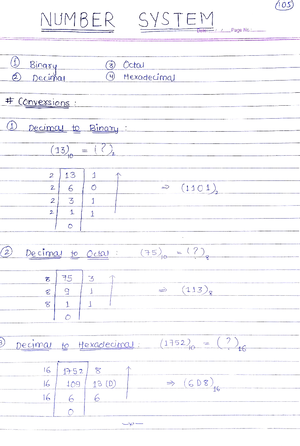 105
NUMBER SYSTEM
Page No.
① Binary ③ Octal
② Decimal ④ Hexadecimal
# Conversions :
① Decimal to Binary :
(13)₁₀ = (?)₂
2 13 1
2 6 0 ⇒ (1101)₂
2 3 1
2 1 1
0
② Decimal to Octal : (75)₁₀ = (?)₈
8 75 3
8 9 1 ⇒ (113)₈
8 1 1
0
Decimal to Hexadecimal : (1752)₁₀ = (?)₁₆
16 1752 8
16 109 13 (D) ⇒ (6D8)₁₆
16 6 6
0